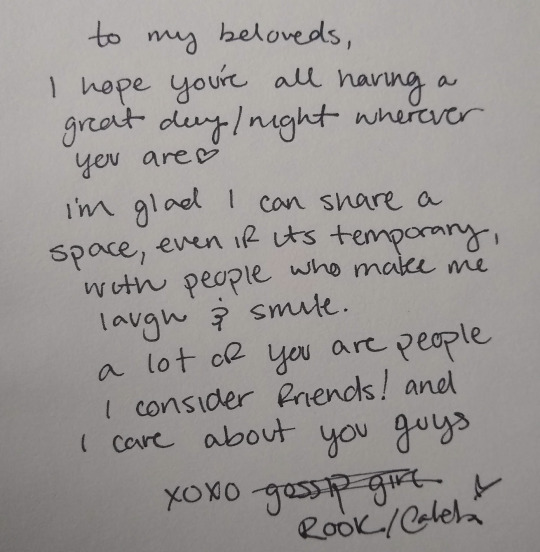 to my beloveds,
I hope you're all having a
great day/night wherever
you are♡
i'm glad I can share a
space, even if its temporary,
with people who make me
laugh & smile.
a lot of you are people
I consider friends! and
I care about you guys
xoxo gossip girl
Rook/Caleb